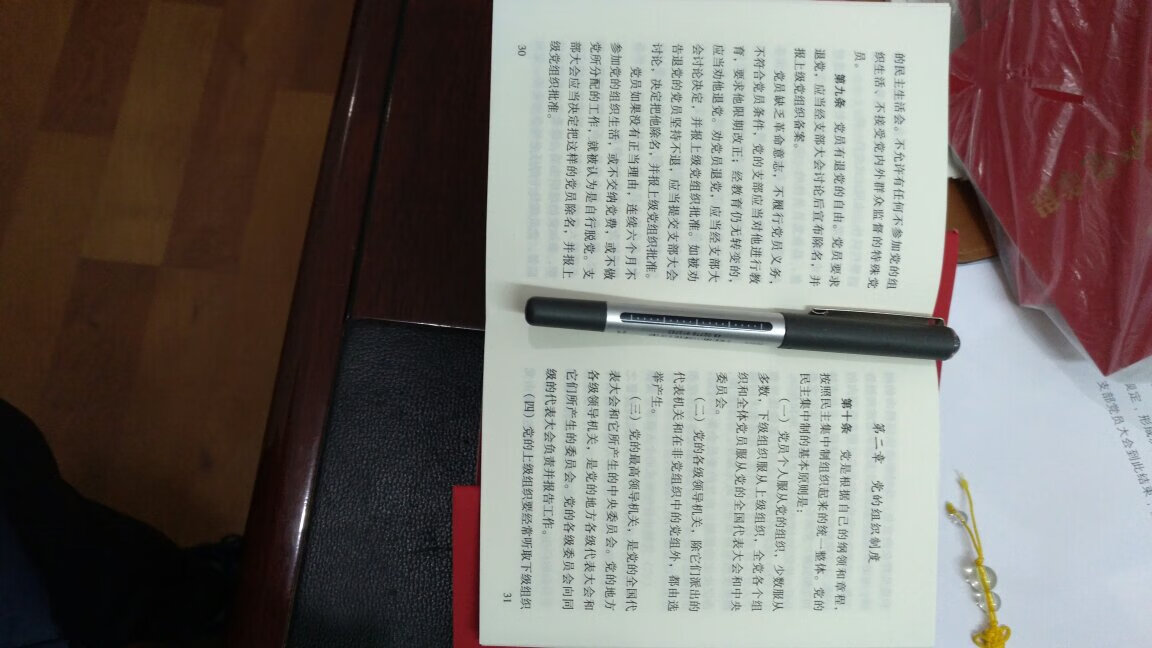 的民主生活会。不允许有任何不参加党的组
织生活、不接受党内外群众监督的特殊党
员。
第九条 党员有退党的自由。党员要求
退党，应当经支部大会讨论后宣布除名，并
报上级党组织备案。
党员缺乏革命意志，不履行党员义务，
不符合党员条件，党的支部应当对他进行教
育，要求他限期改正；经教育仍无转变的，
应当劝他退党。劝党员退党，应当经支部大
会讨论决定，并报上级党组织批准。如被劝
告退党的党员坚持不退，应当提交支部大会
讨论，决定把他除名，并报上级党组织批准。
党员如果没有正当理由，连续六个月不
参加党的组织生活，或不交纳党费，或不做
党所分配的工作，就被认为是自行脱党。支
部大会应当决定把这样的党员除名，并报上
级党组织批准。
30
第二章 党的组织制度
第十条 党是根据自己的纲领和章程，
按照民主集中制组织起来的统一整体。党的
民主集中制的基本原则是：
（一）党员个人服从党的组织，少数服从
多数，下级组织服从上级组织，全党各个组
织和全体党员服从党的全国代表大会和中央
委员会。
（二）党的各级领导机关，除它们派出的
代表机关和在非党组织中的党组外，都由选
举产生。
（三）党的最高领导机关，是党的全国代
表大会和它所产生的中央委员会。党的地方
各级领导机关，是党的地方各级代表大会和
它们所产生的委员会。党的各级委员会向同
级的代表大会负责并报告工作。
（四）党的上级组织要经常听取下级组织
31
支部党员大会到此结束